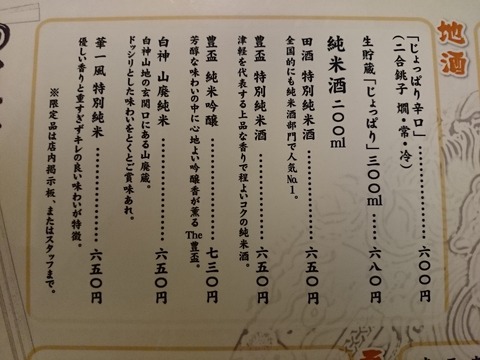 地酒
「じょっぱり辛口」…………六〇〇円
(二合銚子 燗・常・冷)
生貯蔵「じょっぱり」三〇〇ml……六八〇円
純米酒 二〇〇ml
田酒 特別純米酒…………五五〇円
全国的にも純米酒部門で人気No.1。
豊盃 特別純米酒…………六五〇円
津軽を代表する上品な香りで程よいコクの純米酒。
豊盃 純米吟醸…………七三〇円
芳醇な味わいの中に心地よい吟醸香が薫るThe豊盃。
白神 山廃純米…………六五〇円
白神山地の玄関口にある山廃蔵。
ドッシリとした味わいをとくとご賞味あれ。
華一風 特別純米…………六五〇円
優しい香りと重すぎずキレの良い味わいが特徴。
※限定品は店内掲示板、またはスタッフまで。